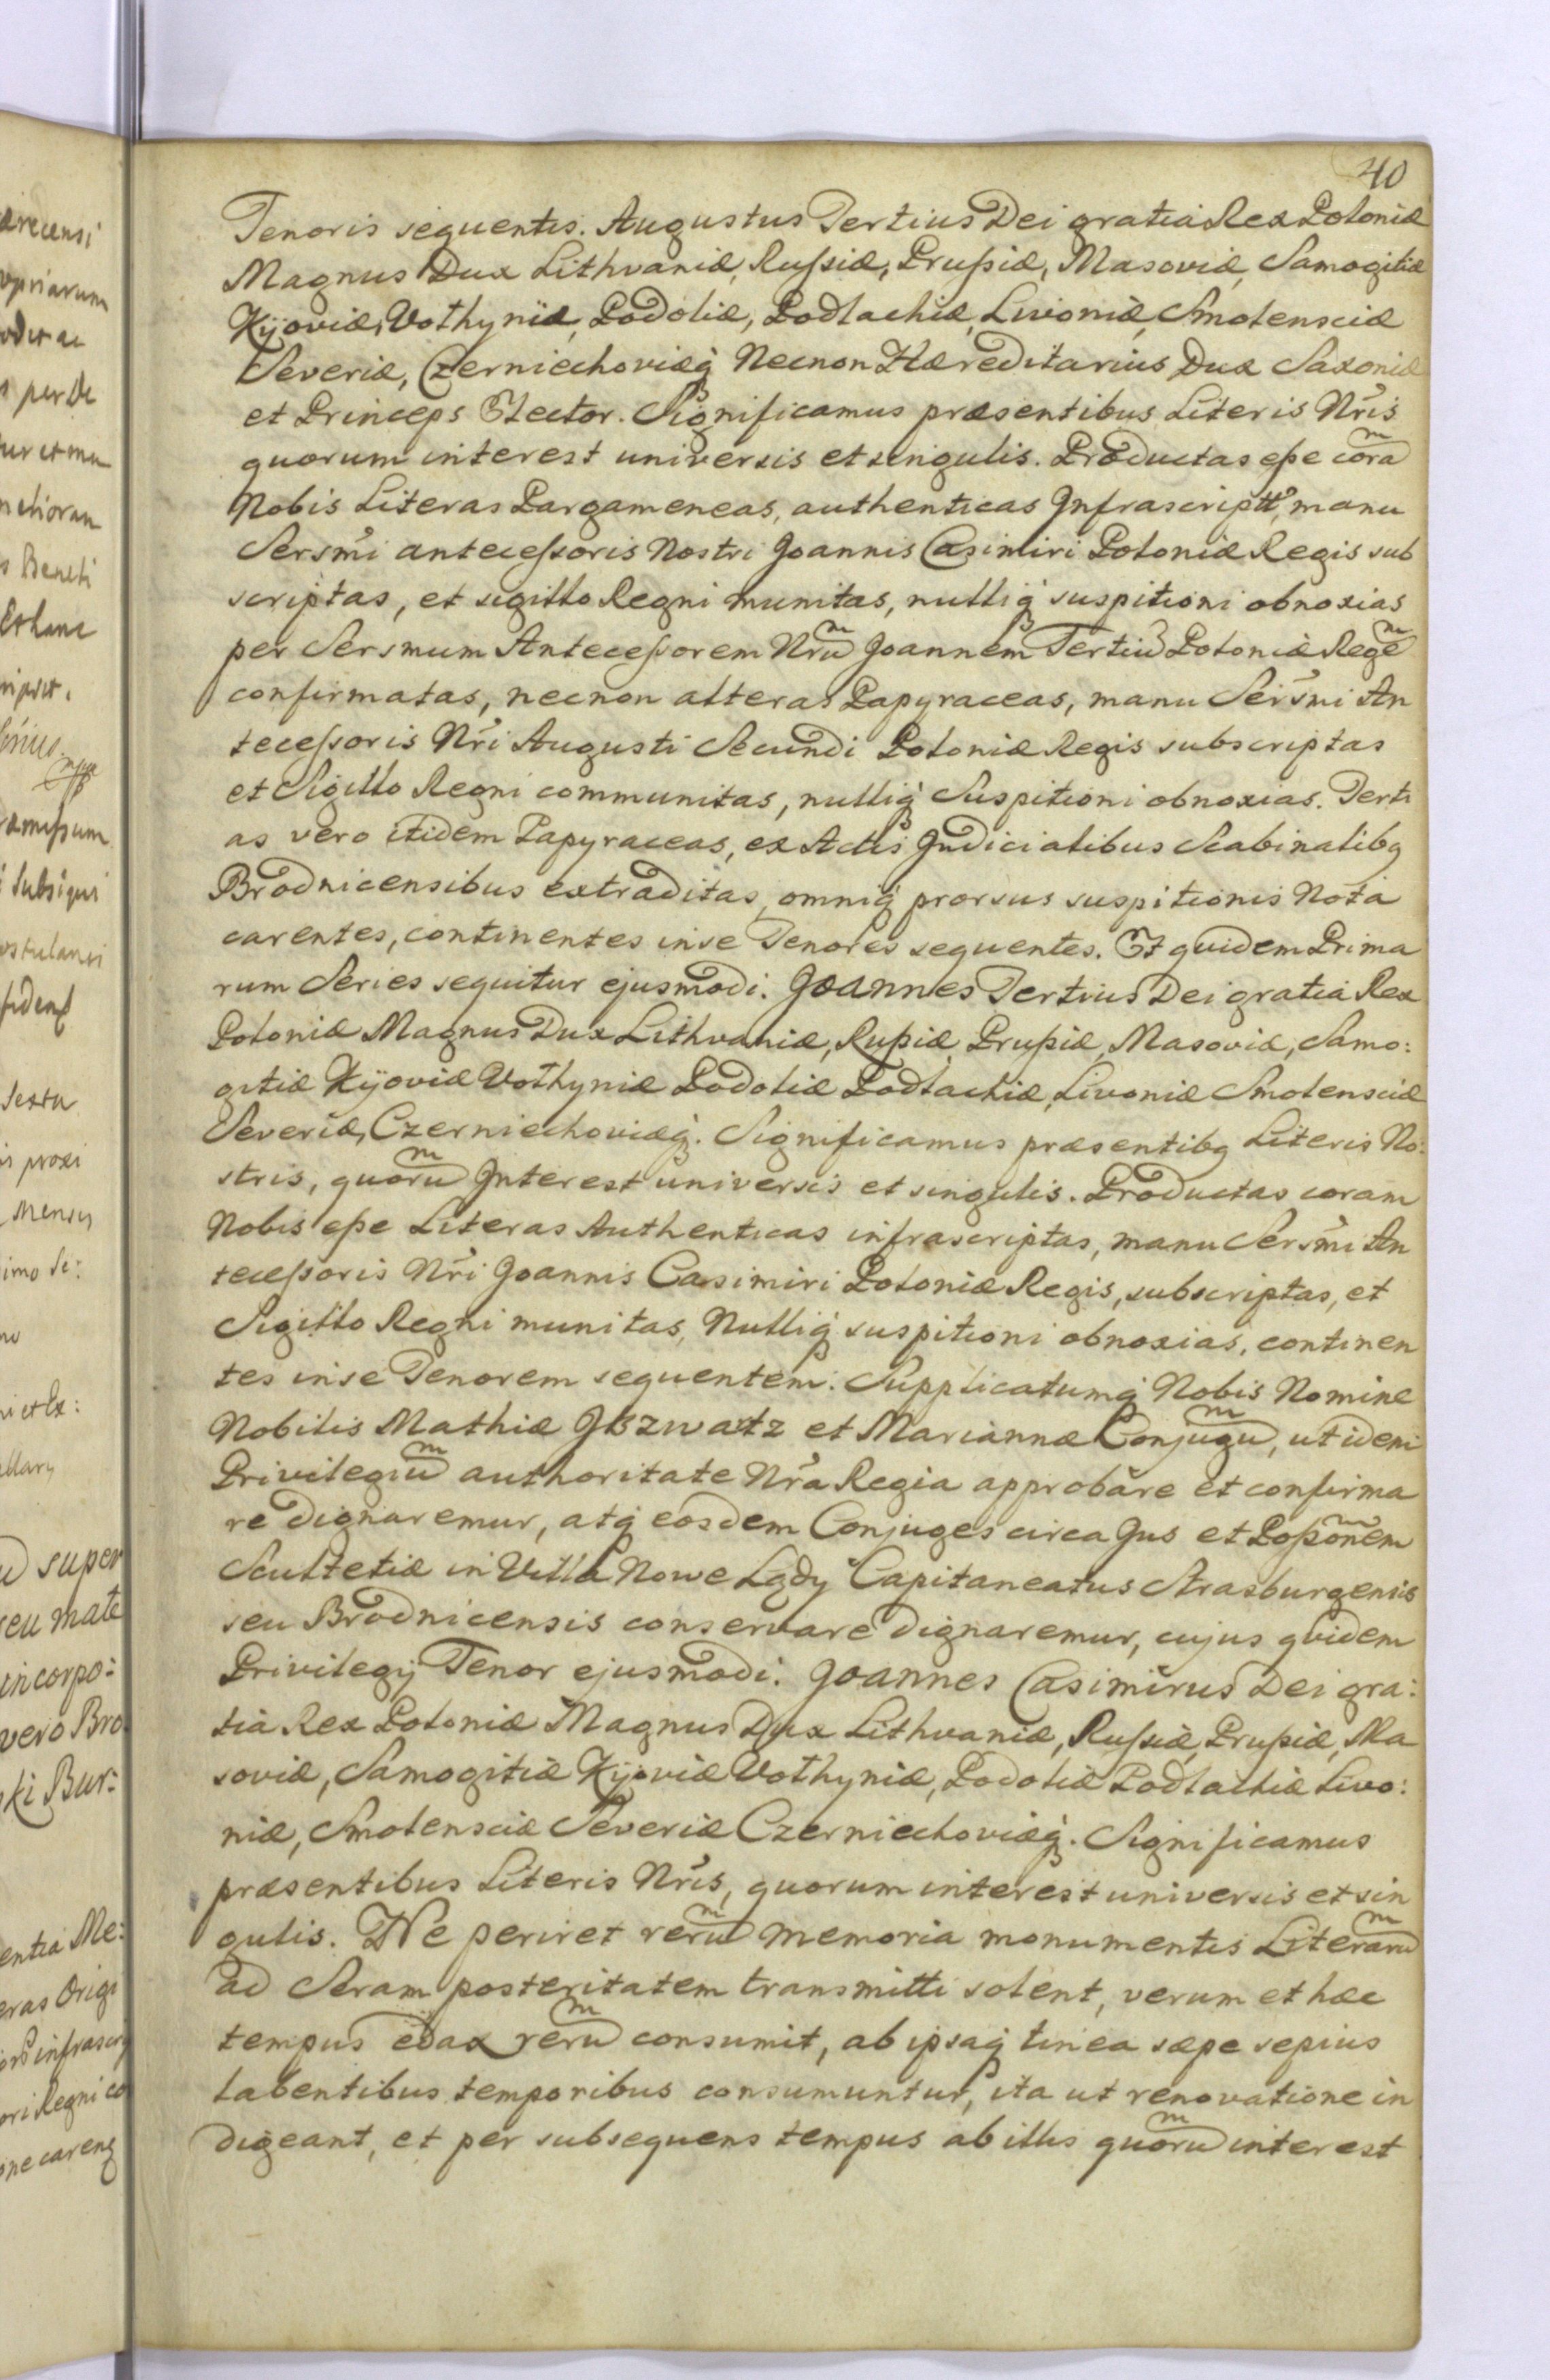 40
Tenoris sequentis. Augustus Tertius Dei gratia Rex Poloniæ
Magnus Dux Lithvaniæ, Russiæ, Prussiæ, Masoviæ, Samogitiæ
Kijoviæ, Volhyniæ, Podoliæ, Podlachiæ, Livoniæ, Smolensciæ
Severiæ, Czerniechoviæq́ Necnon Hæreditarius Dux Saxoniæ
et Princeps Elector. Significamus præsentibus Literis Nr̃is
quorum interest universis et singulis. Productas esse corã
Nobis Literas Pargameneas, authenticas Infrascriptt, manu
Sersm̃i antecessoris Nostri Joannis Casimiri Poloniæ Regis sub
scriptas, et sigillo Regni munitas, nulliq́ suspitioni obnoxias
per Sersmum Antecessorem Nrũ Joannem Tertiũ Poloniæ Regẽ
confirmatas, necnon alteras Papyraceas, manu Sersm̃i An
tecessoris Nr̃i Augusti Secundi Poloniæ Regis subscriptas
et Sigillo Regni communitas, nulliq́ Suspitioni obnoxias. Terti
as vero itidem Papyraceas, ex Actis Judicialibus Scabinalibq
Brodnicensibus extraditas, omniq́ prorsus suspitionis Nota
carentes, continentes in se Tenores sequentes. Et quidem Prima
rum Series sequitur ejusmodi. Joannes Tertius Dei gratia Rex
Poloniæ Magnus Dux Lithvaniæ, Russiæ, Prussiæ, Masoviæ, Samo:
gitiæ Kijoviæ Volhyniæ Podoliæ Podlachiæ, Livoniæ Smolensciæ
Severiæ, Czerniechoviæq́. Significamus præsentibq Literis No:
stris, quorũ Interest universis et singulis. Productas coram
Nobis esse Literas Authenticas infrascriptas, manu Sersm̃i An
tecessoris Nr̃i Joannis Casimiri Poloniæ Regis, subscriptas, et
Sigillo Regni munitas, Nulliq́ suspitioni obnoxias, continen
tes in se Tenorem sequentem. Supplicatumq́ Nobis Nomine
Nobilis Mathiæ et Mariannæ Conjugũ, ut idem
Privilegiũ authoritate Nr̃a Regia approbare et confirma
re dignaremur, atq́ eosdem Conjuges circa Jus et Possonẽm
Scultetiæ in Villa Nowe Lądy Capitaneatus Strasburgensis
seu Brodnicensis conservare dignaremur, cujus quidem
Privilegij Tenor ejusmodi. Joannes Casimirus Dei gra:
tia Rex Poloniæ Magnus Dux Lithvaniæ, Russiæ, Prussiæ, Ma
soviæ, Samogitiæ Kijoviæ Volhyniæ, Podoliæ Podlachiæ Livo:
niæ, Smolensciæ Severiæ Czerniechoviæq́. Significamus
præsentibus Literis Nr̃is, quorum interest universis et sin
gulis. Ne periret rerũ memoria monumentis Literarũ
ad Seram posteritatem transmitti solent, verum et hæc
tempus edax rerũ consumit, ab ipsaq́ tinea sæpe sepius
labentibus temporibus consumuntur, ita ut renovatione in
digeant, et per subsequens tempus ab illis quorũ interest